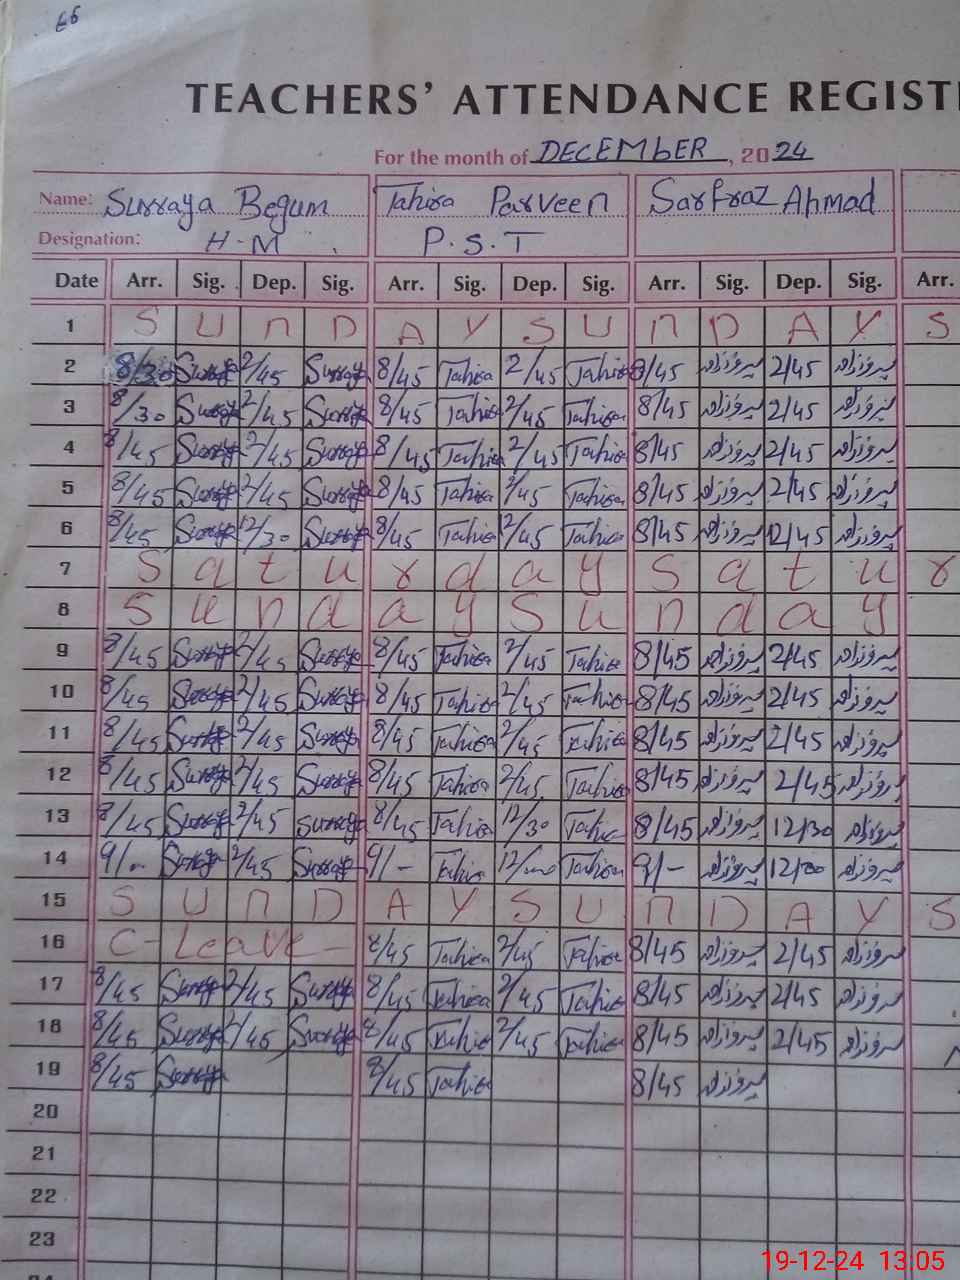 66
TEACHERS' ATTENDANCE REGIST
For the month of DECEMBER, 2024
Name: Surraya Begum Tahira Parveen Sarfraz Ahmad
Designation: H-M. P.S.T
Date Arr. Sig. Dep. Sig. Arr. Sig. Dep. Sig. Arr. Sig. Dep. Sig. Arr.
1 S U N D A Y S U N D A Y S
2 8/30 Surraya 2/45 Surraya 8/45 Tahira 2/45 Tahira 8/45 2/45
3 8/30 Surraya 2/45 Surraya 8/45 Tahira 2/45 Tahira 8/45 2/45
4 8/45 Surraya 2/45 Surraya 8/45 Tahira 2/45 Tahira 8/45 2/45
5 8/45 Surraya 2/45 Surraya 8/45 Tahira 2/45 Tahira 8/45 2/45
6 8/45 Surraya 12/30 Surraya 8/45 Tahira 12/45 Tahira 8/45 12/45
7 S a t u r d a y S a t u r
8 S u n d a y S u n d a y
9 8/45 Surraya 2/45 Surraya 8/45 Tahira 2/45 Tahira 8/45 2/45
10 8/45 Surraya 2/45 Surraya 8/45 Tahira 2/45 Tahira 8/45 2/45
11 8/45 Surraya 2/45 Surraya 8/45 Tahira 2/45 Tahira 8/45 2/45
12 8/45 Surraya 2/45 Surraya 8/45 Tahira 2/45 Tahira 8/45 2/45
13 8/45 Surraya 2/45 Surraya 8/45 Tahira 12/30 Tahira 8/45 12/30
14 9/- Surraya 2/45 Surraya 9/- Tahira 12/00 Tahira 9/- 12/00
15 S U N D A Y S U N D A Y S
16 C-Leave- 8/45 Tahira 2/45 Tahira 8/45 2/45
17 8/45 Surraya 2/45 Surraya 8/45 Tahira 2/45 Tahira 8/45 2/45
18 8/45 Surraya 2/45 Surraya 8/45 Tahira 2/45 Tahira 8/45 2/45
19 8/45 Surraya 8/45 Tahira 8/45
20
21
22
23
19-12-24 13:05